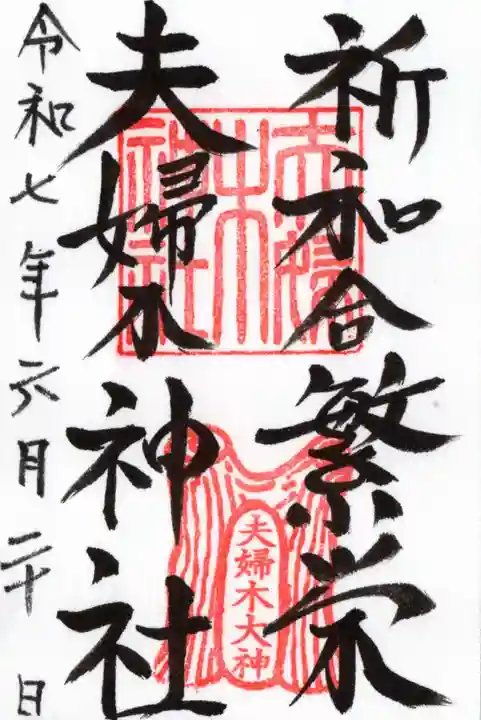 祈和合繁栄
夫婦木神社
令和七年六月二十日
夫婦木神社
夫婦木大神